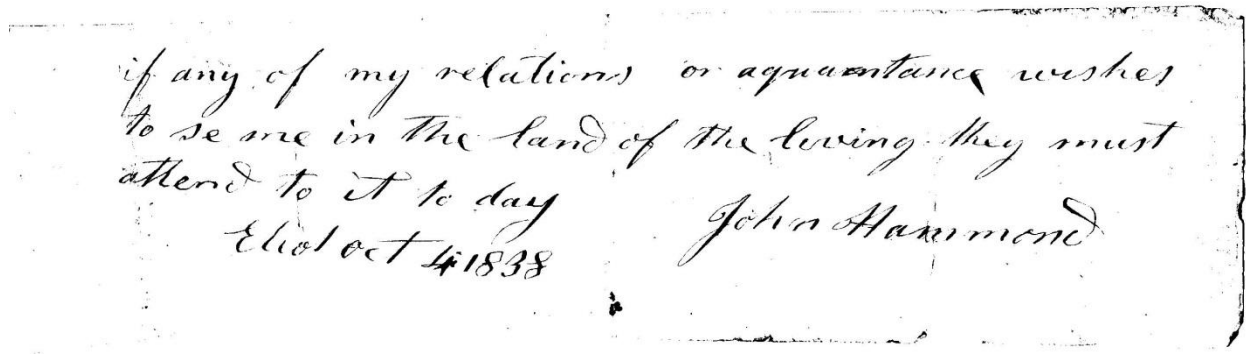 if any of my relations or aquaintance wishes
to se me in the land of the living they must
attend to it to day
John Hammond
Eliot Oct 4 1838